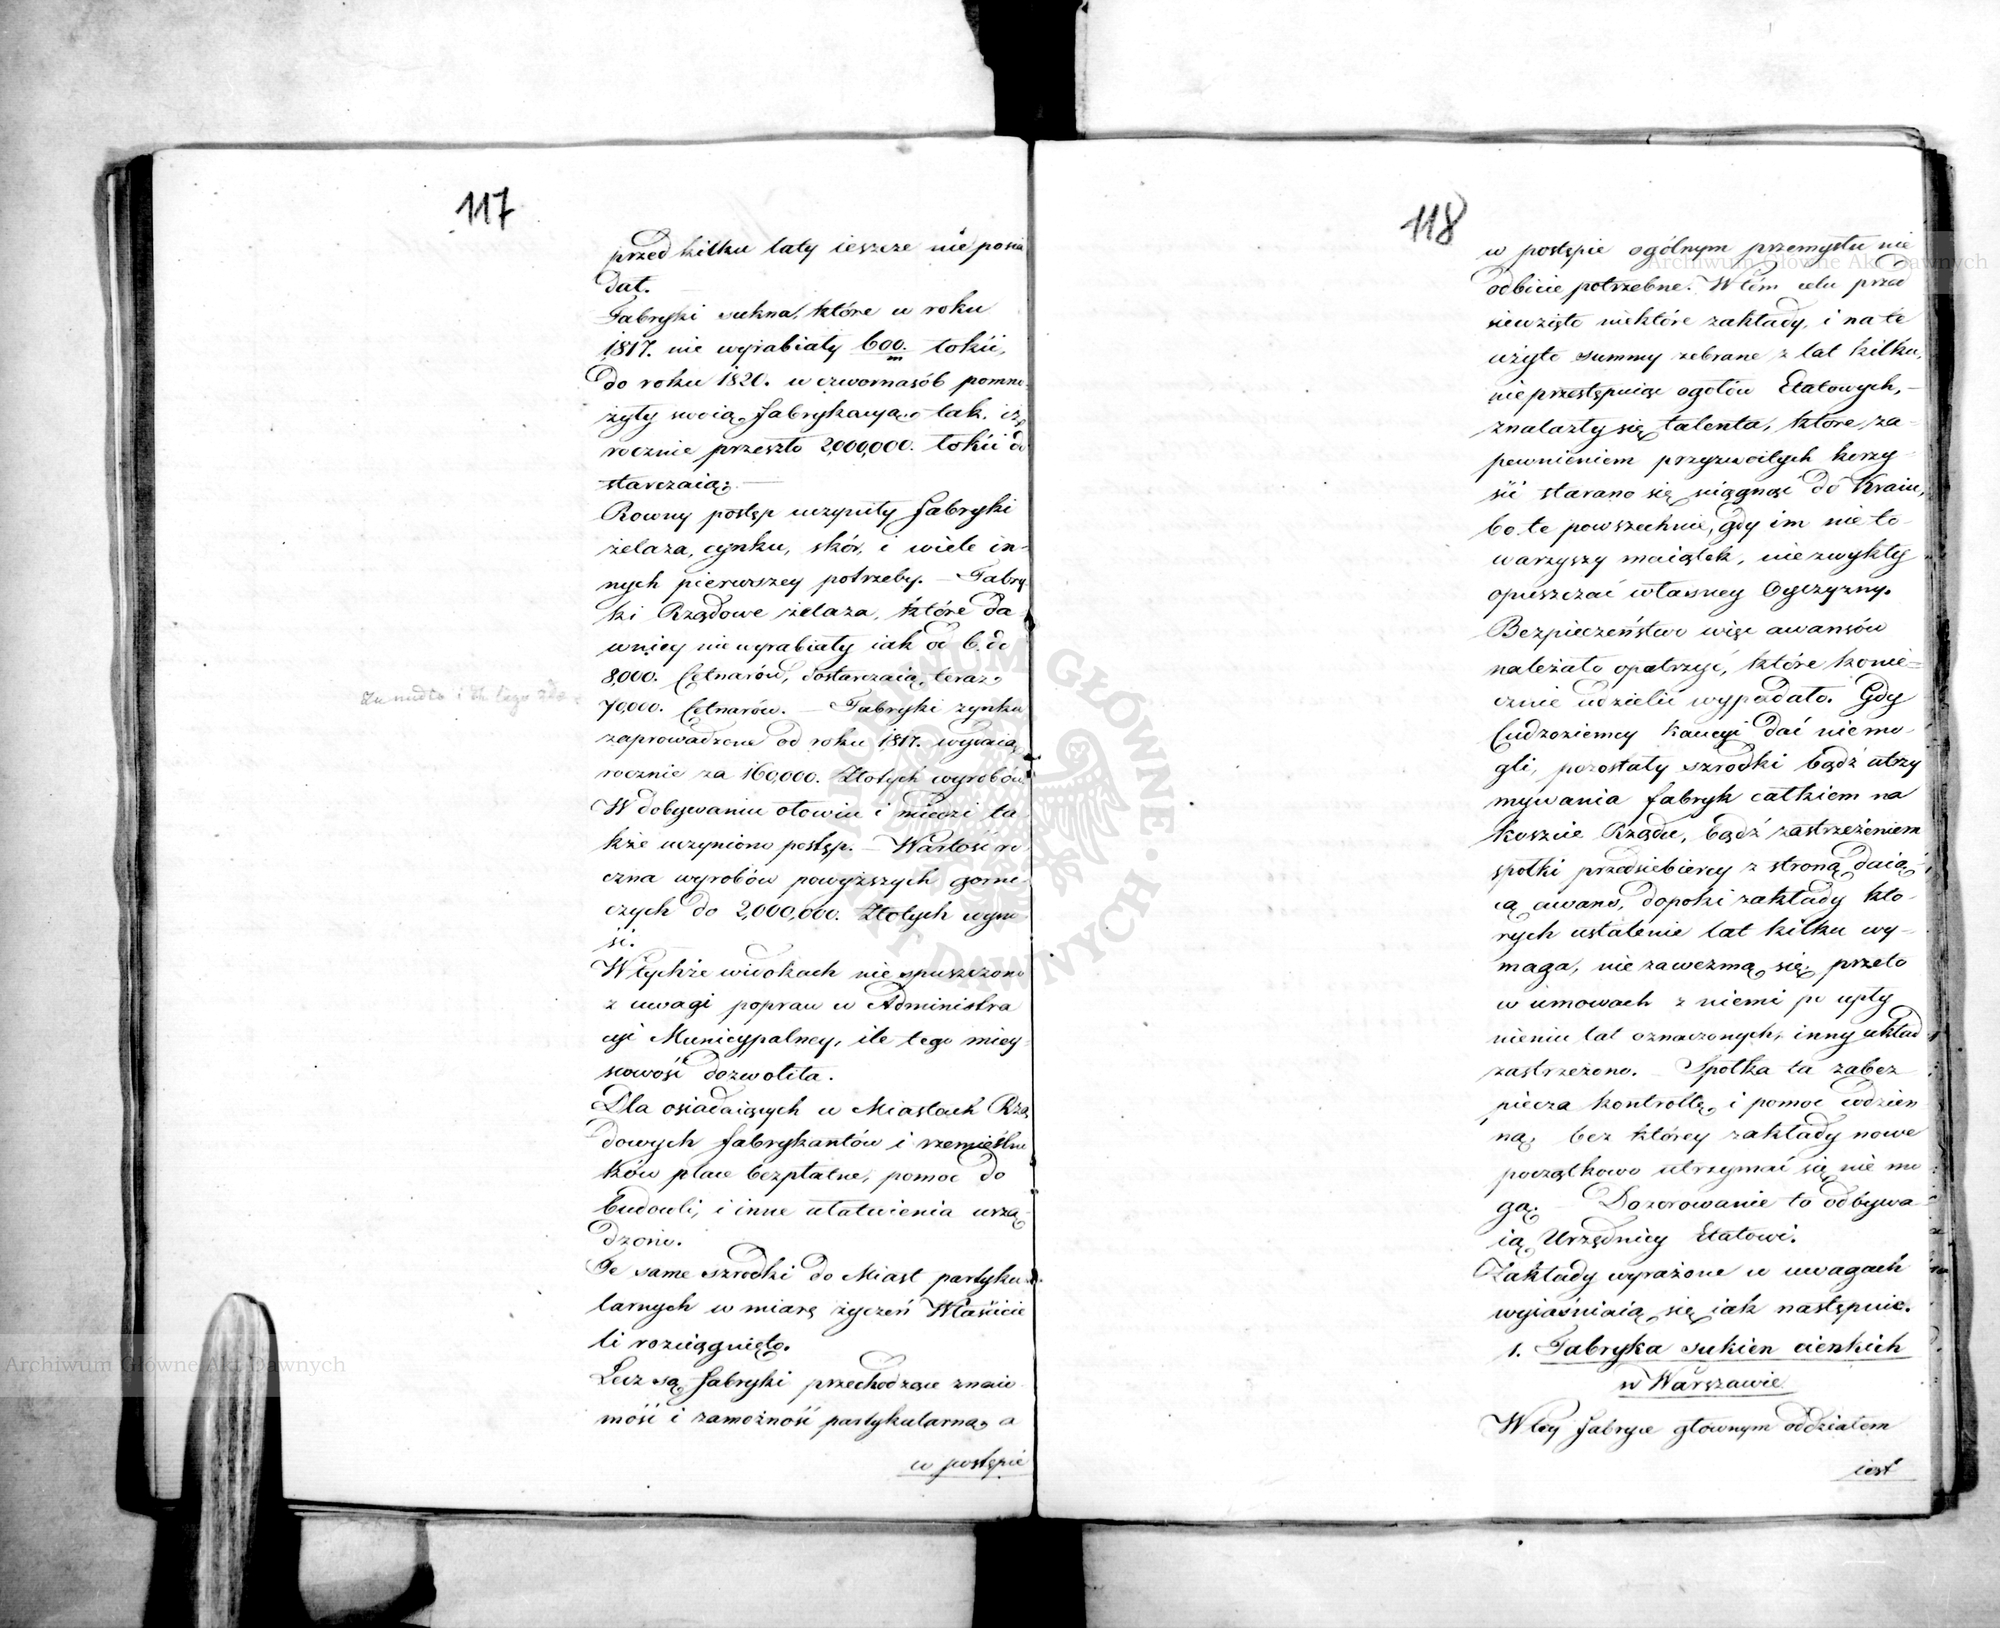 117
przed kilku laty ieszcze nie posia
dał.
Fabryki sukna, które w roku
1817. nie wyrabiały 600. m łokci,
do roku 1820. w czwornasób pomno-
żyły swoią fabrykacyą, tak, iż
rocznie przeszło 2,000,000. łokci do
starczaią.
Rowny postęp uczyniły fabryki
żelaza, cynku, skór, i wiele in-
nych pierwszey potrzeby. — Fabry
ki Rządowe żelaza, które da
wniey nie wyrabiały iak od 6. do
8,000. Cetnarów, dostarczaią teraz
70,000. Cetnarów. — Fabryki zynku
zaprowadzone od roku 1817. wydaią
rocznie za 160,000. Złotych wyrobów
W dobywaniu ołowiu i miedzi ta
kże uczyniono postęp. — Wartość ro
czna wyrobów powyższych gorni-
czych do 2,000,000. Złotych wyno
si.
W tychże widokach nie spuszczono
z uwagi popraw w Administra
cyi Municypalney, ile tego miey
scowość dozwoliła.
Dla osiadaiących w Miastach Rzą
dowych fabrykantów i rzemieślni
ków place bezpłatne, pomoc do
budowli, i inne ułatwienia urzą
dzono.
Te same szrodki do Miast partyku
larnych w miarę życzeń Właścicie
li rozciągnięto.
Lecz są fabryki przechodzące znaio
mość i zamożność partykularną, a
w postępie
118
w postępie ogólnym przemysłu nie
odbicie potrzebne. W tem celu przed
siewzięto niektóre zakłady, i na te
użyto summy zebrane z lat kilku,
nie przestępuiąc ogołów Etatowych, —
znalazły się talenta, które za-
pewnieniem przyzwoitych korzy-
ści starano się ściągnąć do Kraiu,
bo te powszechnie, gdy im nie to-
warzyszy maiątek, nie zwykły
opuszczać własney Oyczyzny.
Bezpieczeństwo więc awansów
należało opatrzyć, które konie-
cznie udzielić wypadało. Gdy
Cudzoziemcy Kaucyi dać nie mo-
gli, pozostały szrodki bądź utrzy
mywania fabryk całkiem na
koszcie Rządu, bądź zastrzeżeniem
społki przedsiebiercy z stroną daią-
cą awans, dopoki zakłady któ-
rych ustalenie lat kilku wy-
maga, nie zawezmą się, przeto
w umowach z niemi po upły
nieniu lat oznaczonych, inny układ
zastrzeżono. — Spółka ta zabez
piecza kontrollę, i pomoc codzien
ną, bez którey zakłady nowe
początkowo utrzymać się nie mo
gą. — Dozorowanie to odbywa
ią Urzędnicy Etatowi.
Zakłady wyrażone w uwagach
wyiaśniaią się iak następuie.
1. Fabryka sukien cienkich
w Warszawie
W tey fabryce głównym oddziałem
iest
Archiwum Główne Akt Dawnych
Archiwum Główne Akt Dawnych
ARCHIWUM GŁÓWNE AKT DAWNYCH